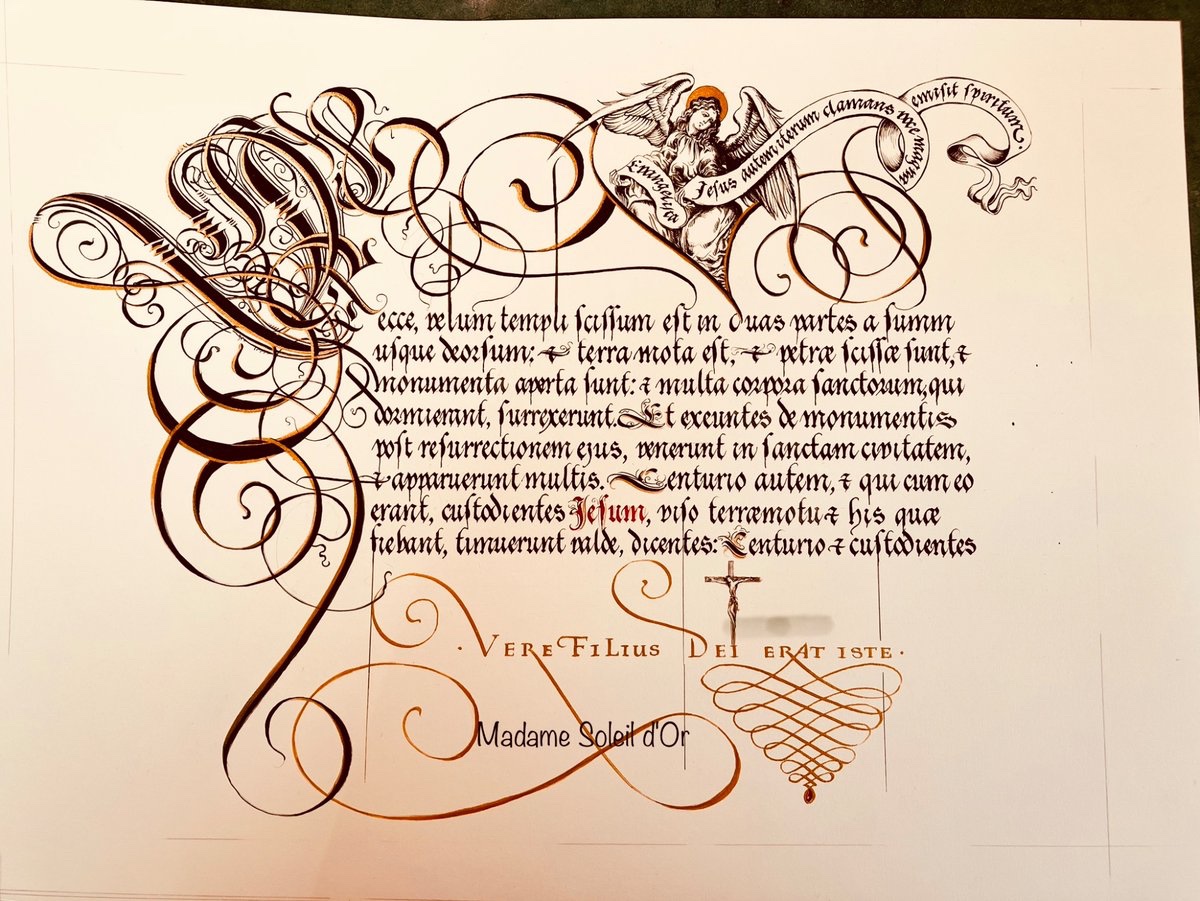 Jesus autem iterum clamans voce magna
emisit spiritum.
Et
ecce, velum templi scissum est in duas partes a summ
usque deorsum: & terra mota est, & petræ scissæ sunt, &
monumenta aperta sunt: & multa corpora sanctorum, qui
dormierant, surrexerunt. Et exeuntes de monumentis
post resurrectionem ejus, venerunt in sanctam civitatem,
& apparuerunt multis. Centurio autem, & qui cum eo
erant, custodientes Jesum, viso terræmotu & his quæ
fiebant, timuerunt valde, dicentes: Centurio & custodientes
· VERE FILIUS DEI ERAT ISTE ·
Madame Soleil d'Or